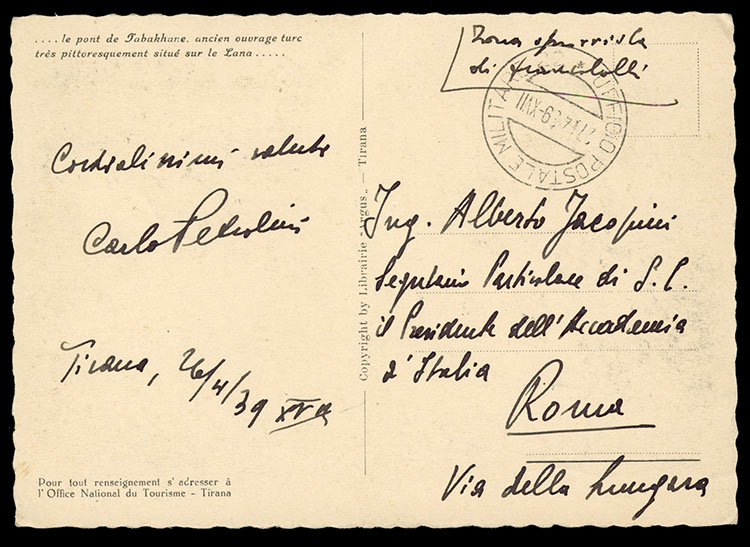 .... le pont de Tabakhane, ancien ouvrage turc
très pittoresquement situé sur le Lana .....
Cordialissimi saluti
Carlo Petrolini
Tirana, 26/4/39 XVII
Pour tout renseignement s'adresser à
l'Office National du Tourisme - Tirana
Copyright by Librairie „Argus„ — Tirana
Zona sprovvista
di francobolli
UFFICIO POSTALE MILITARE
27.4.39-XVII
Ing. Alberto Jacopini
Segretario Particolare di S. E.
il Presidente dell'Accademia
d'Italia
Roma
Via della Lungara